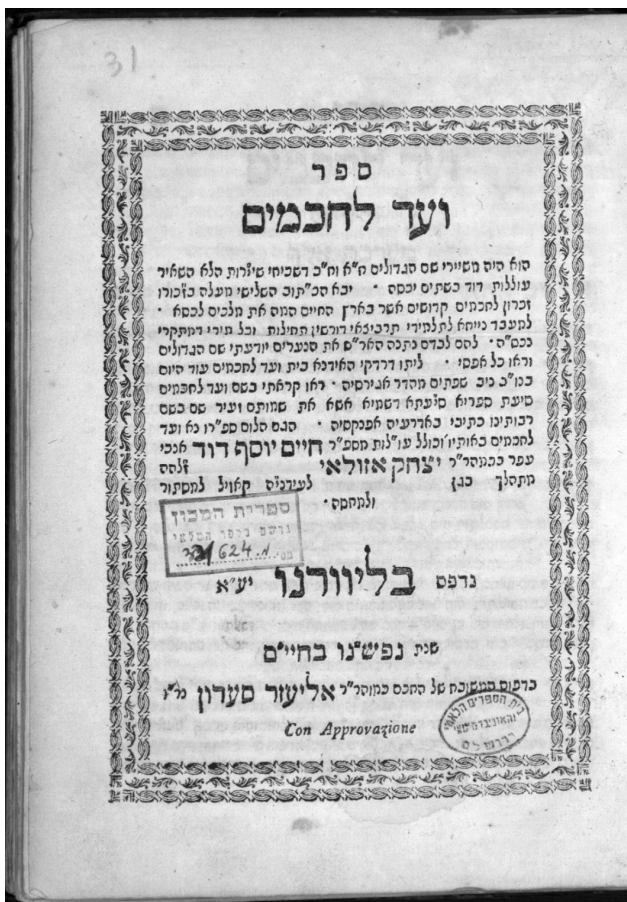 31
ספר
ועד לחכמים
הוא היה משיירי שם הגדולים ח"א וח"ב דשכיחי שיורות הלא השאיר
עוללות דוד בשתים יכסה · יבא הכ"תוב השלישי מעלה בזכורו
זכרון לחכמים קדושים אשר בארץ החיים המה את מלכים לכסא ·
למעבד נייחא לתלמידי תרביצאי דורשין תחילות וכל מידי דמתקרי
נכס"ה · להם לבדם נתנה האר"ש את הנערים יודעתי שם הגדולים
וראו כל אפסי · ליתו דרדקי האידנא בית ועד לחכמים עוד היום
במו"כ ניב שפתים מהדר אגירסיה · ראו קראתי בשם ועד לחכמים
סיעת ספריא סיעתא דשמיא אשא את שמותם ועיר שם בשם
רבותינו כתיבי באדרעיה אפנקסיה · הגם הלום ספ"רו נא ועד
לחכמים באותיו' וכולל עו"לות מספ"ר חיים יוסף דוד אנכי
עפר בכמהר"ר יצחק אזולאי זלהה
מתהלך בגן לעידניה קאויל למסתור
ולמחסה ·
ספרית המכון
624
נדפס בליוורנו יע"א
שנת נפש"נו בחיי"ם
בדפוס המשובח של החכם כמוהר"ר אליעזר סעדון נר"ו
Con Approvazione
בית הספרים הלאומי
והאוניברסיטאי
ירושלים